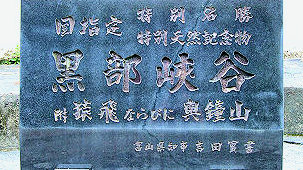 国指定 特別名勝
特別天然記念物
黒部峡谷
附猿飛ならびに奥鐘山
富山県知事 吉田實書